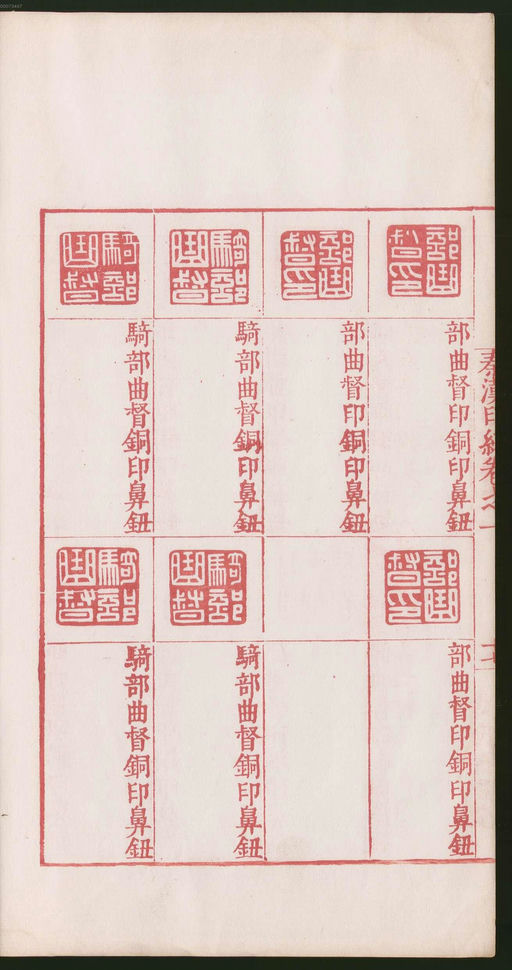 秦漢印統卷之一
部曲督印
部曲督印銅印鼻鈕
部曲督印
部曲督印銅印鼻鈕
騎部曲督
騎部曲督銅印鼻鈕
騎部曲督
騎部曲督銅印鼻鈕
部曲督印
部曲督印銅印鼻鈕
騎部曲督
騎部曲督銅印鼻鈕
騎部曲督
騎部曲督銅印鼻鈕